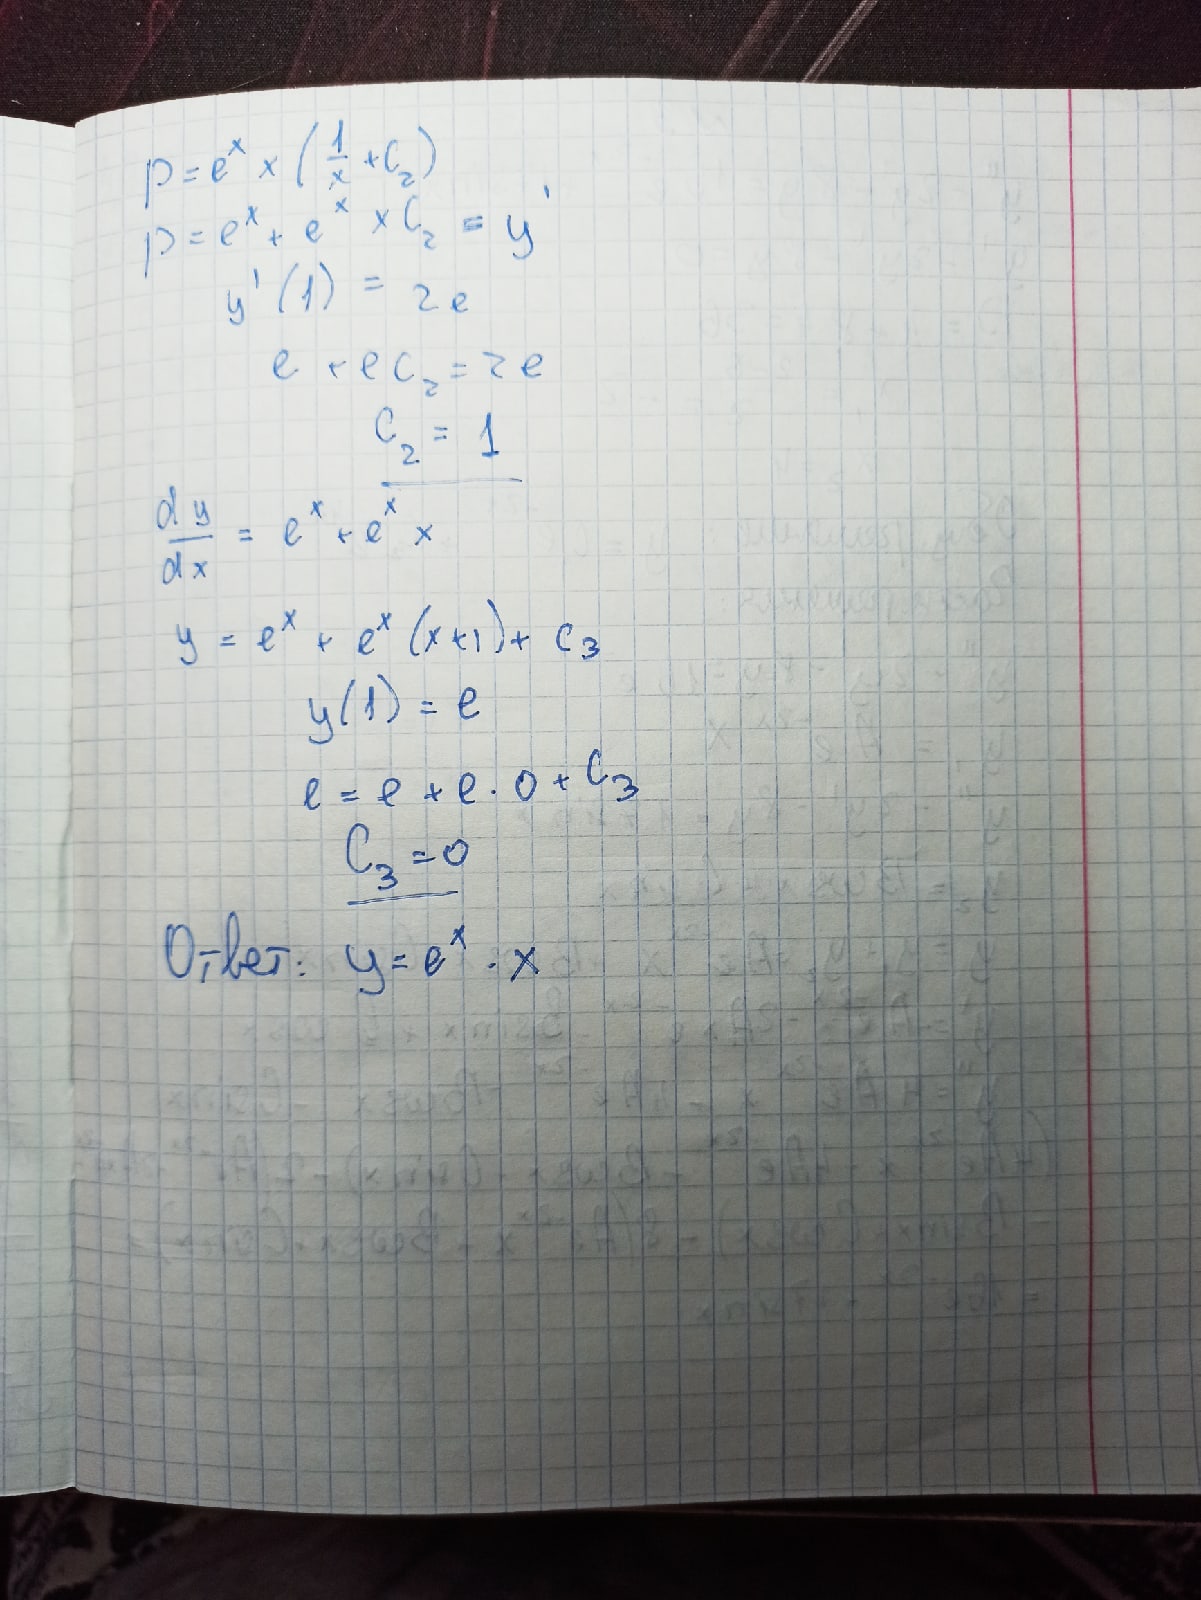 p = e^x x (1/x + C_2)
p = e^x + e^x x C_2 = y'
y'(1) = 2e
e + e C_2 = 2e
C_2 = 1
dy/dx = e^x + e^x x
y = e^x + e^x (x+1) + C_3
y(1) = e
e = e + e · 0 + C_3
C_3 = 0
Ответ: y = e^x · x